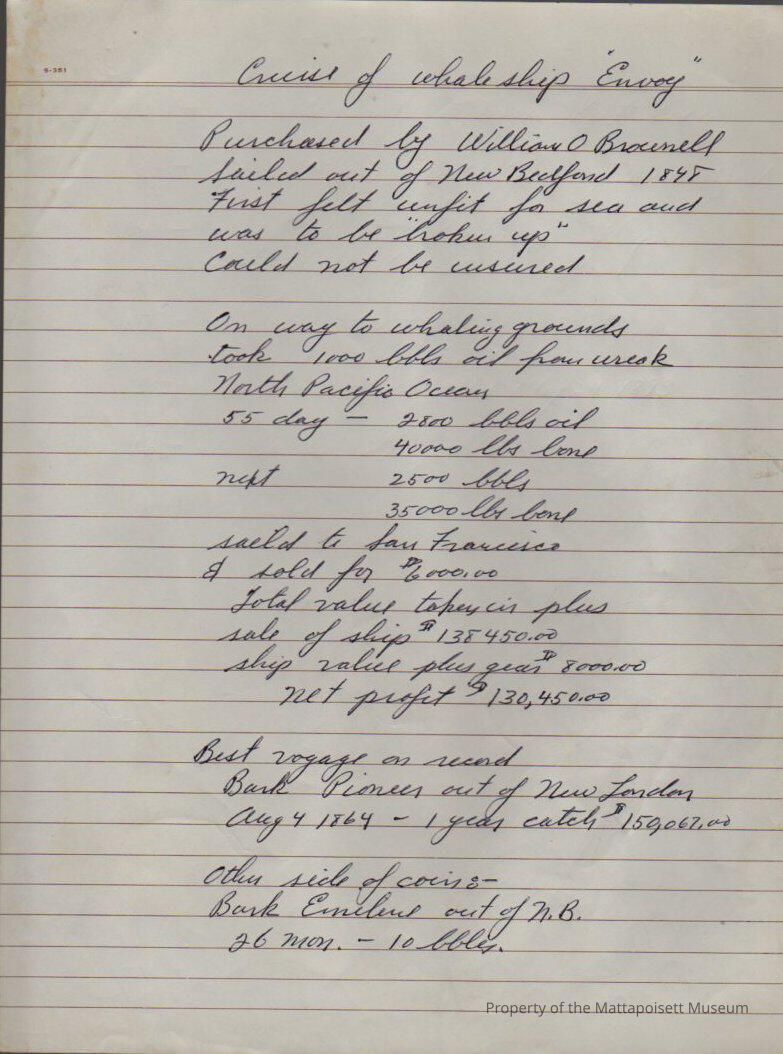 S-351
Cruise of whaleship "Envoy"
Purchased by William O Brownell
sailed out of New Bedford 1848
First felt unfit for sea and
was to be "broken up"
Could not be insured
On way to whaling grounds
took 1000 bbls oil from wreck
North Pacific Ocean
55 day - 2800 bbls oil
40000 lbs bone
next 2500 bbls
35000 lbs bone
saild to San Francisco
& sold for $6000.00
Total value taken in plus
sale of ship $138450.00
ship value plus gear $8000.00
net profit $130,450.00
Best voyage on record
Bark Pioneer out of New London
Aug 4 1864 - 1 year catch $150,062.00
Other side of coin:-
Bark Emeline out of N.B.
26 mon. - 10 bbls.
Property of the Mattapoisett Museum